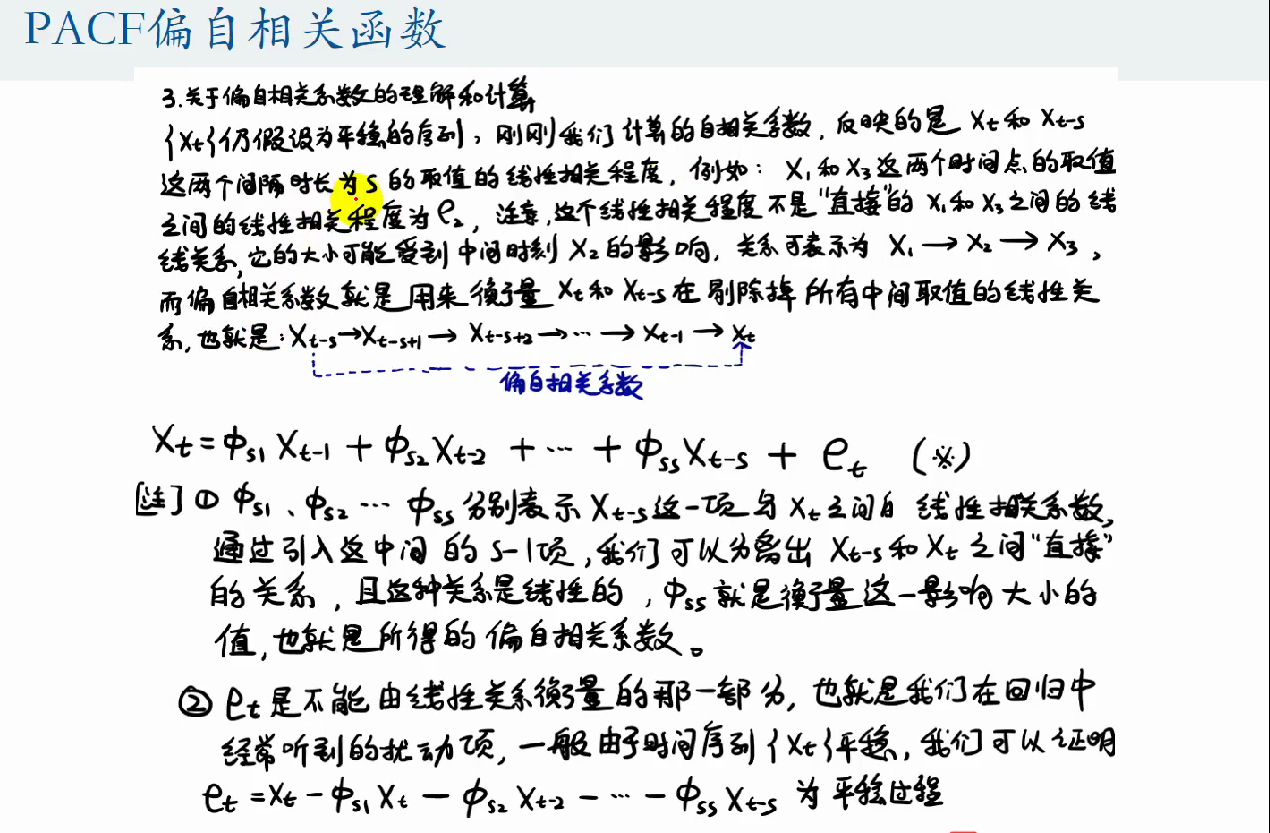 PACF偏自相关函数
3.关于偏自相关系数的理解和计算
{Xt}仍假设为平稳的序列，刚刚我们计算的自相关系数，反映的是 Xt和 Xt-s
这两个间隔时长为 s 的取值的线性相关程度，例如：X₁和X₃这两个时间点的取值
之间的线性相关程度为ρ₂，注意，这个线性相关程度不是“直接”的 X₁和X₃之间的线
线关系，它的大小可能受到中间时刻 X₂的影响，关系可表示为 X₁→X₂→X₃，
而偏自相关系数就是用来衡量 Xt和 Xt-s在剔除掉所有中间取值的线性关
系，也就是：Xt-s→Xt-s+1→ Xt-s+2→…→ Xt-1→ Xt
偏自相关系数
Xt=ϕs1 Xt-1 + ϕs2 Xt-2 + … + ϕss Xt-s + et (※)
[注] ① ϕs1、ϕs2 … ϕss 分别表示 Xt-s这一项与 Xt之间自 线性相关系数，
通过引入这中间的 s-1项，我们可以分离出 Xt-s和 Xt 之间“直接”
的关系，且这种关系是线性的，ϕss就是衡量这一影响大小的
值，也就是所得的偏自相关系数。
② et是不能由线性关系衡量的那一部分，也就是我们在回归中
经常听到的扰动项，一般由于时间序列{Xt}平稳，我们可以证明
et =Xt - ϕs1 Xt - ϕs2 Xt-2 - … - ϕss Xt-s 为平稳过程